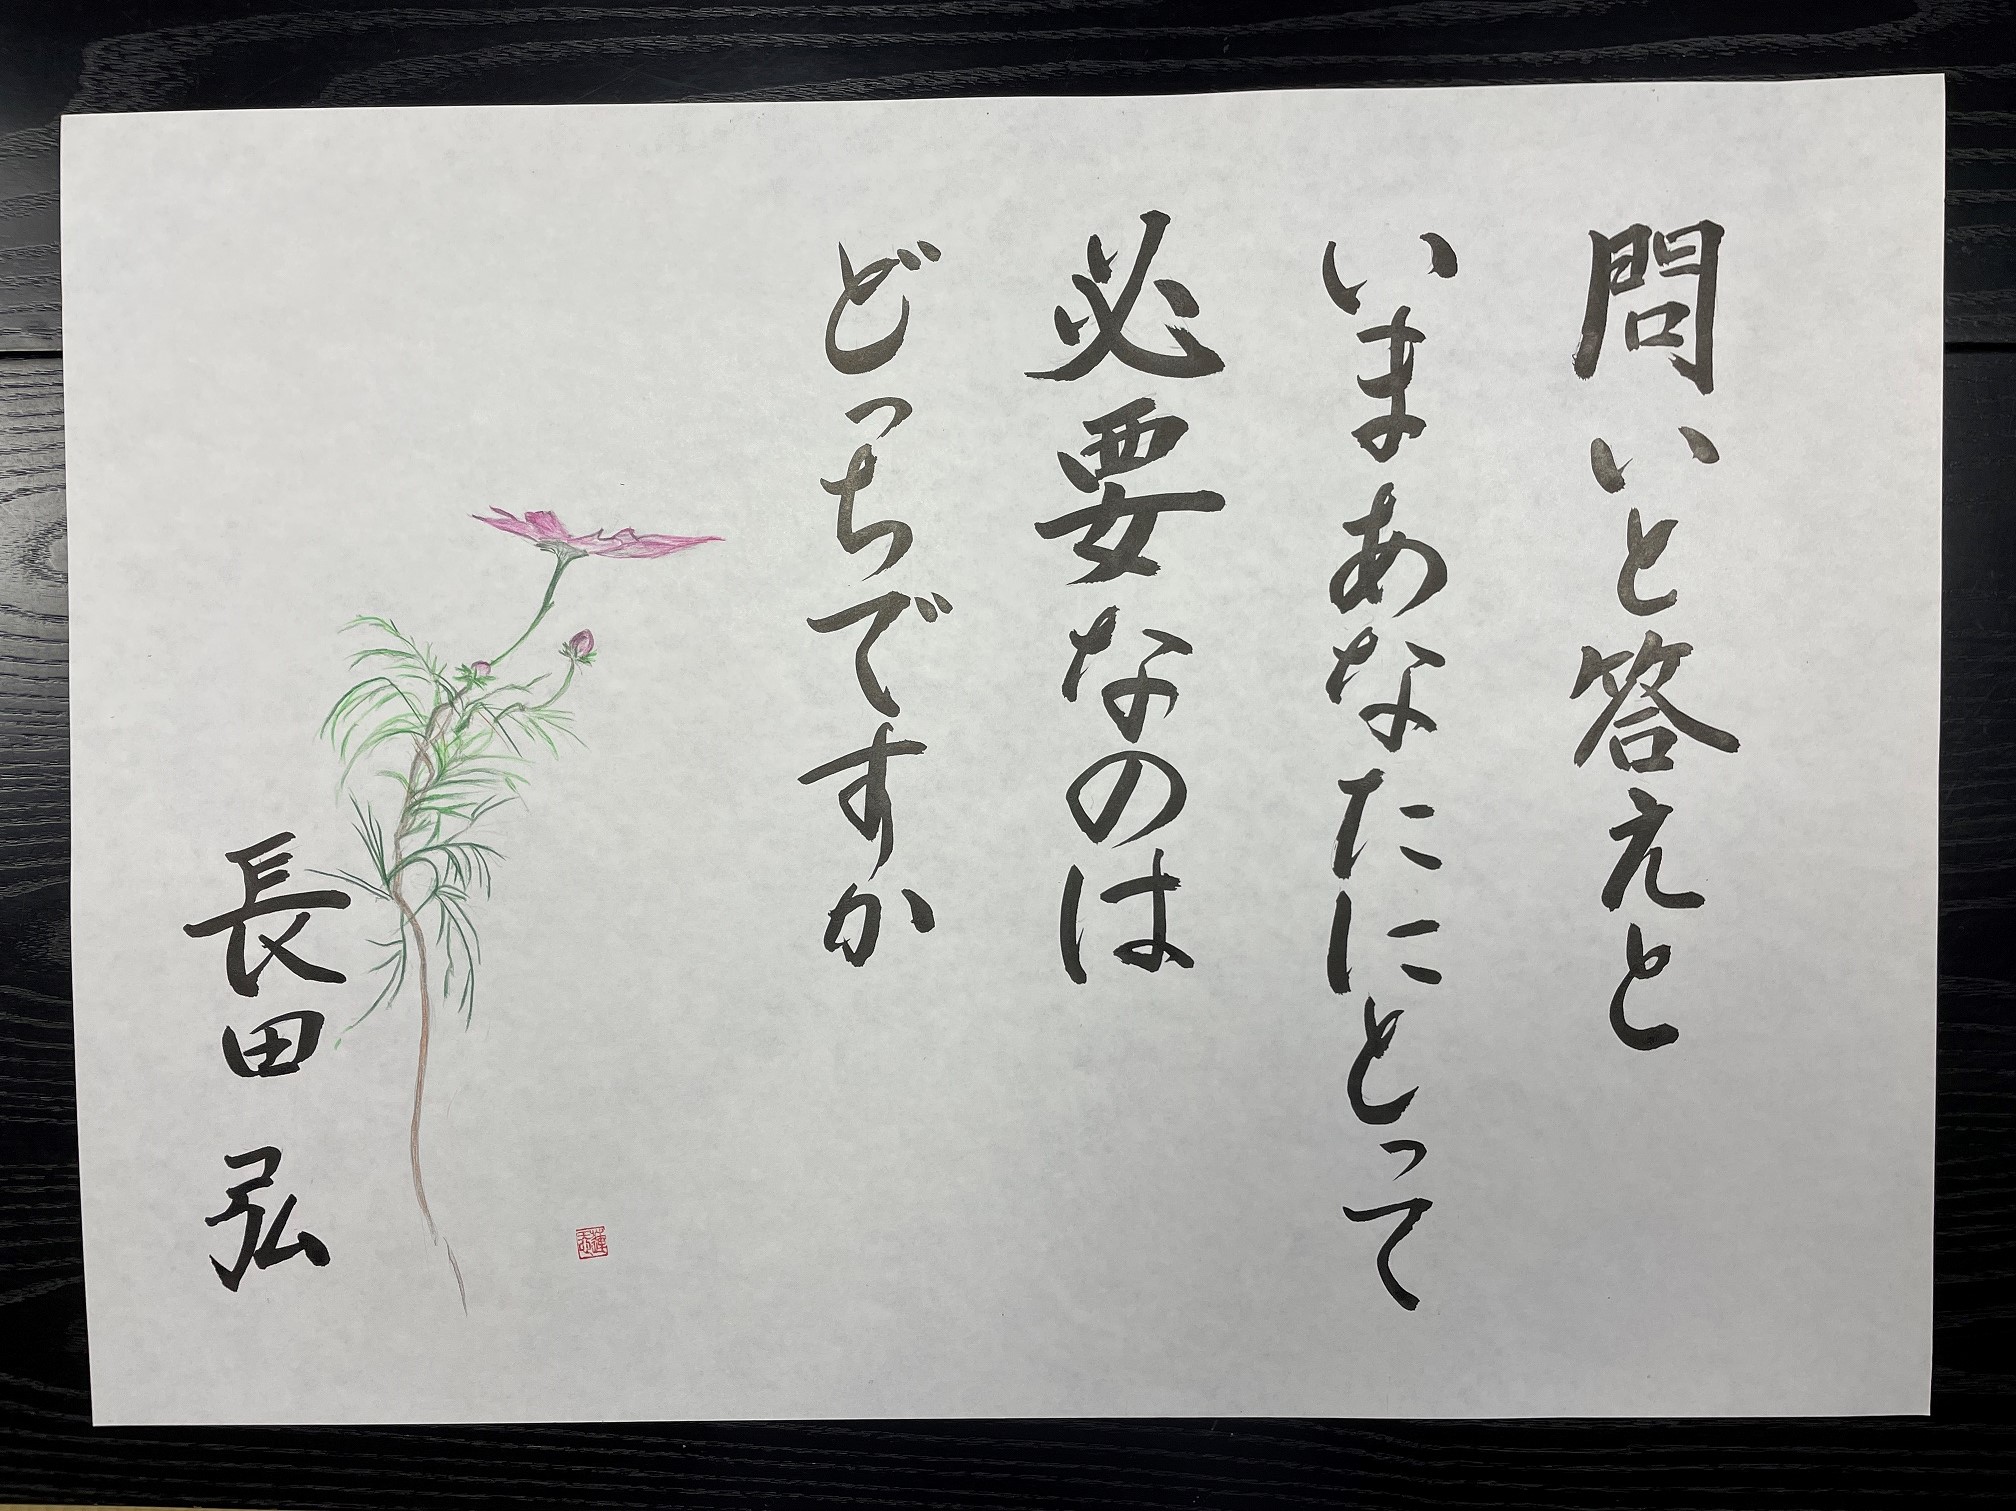 問いと答えと
いまあなたにとって
必要なのは
どっちですか
長田弘